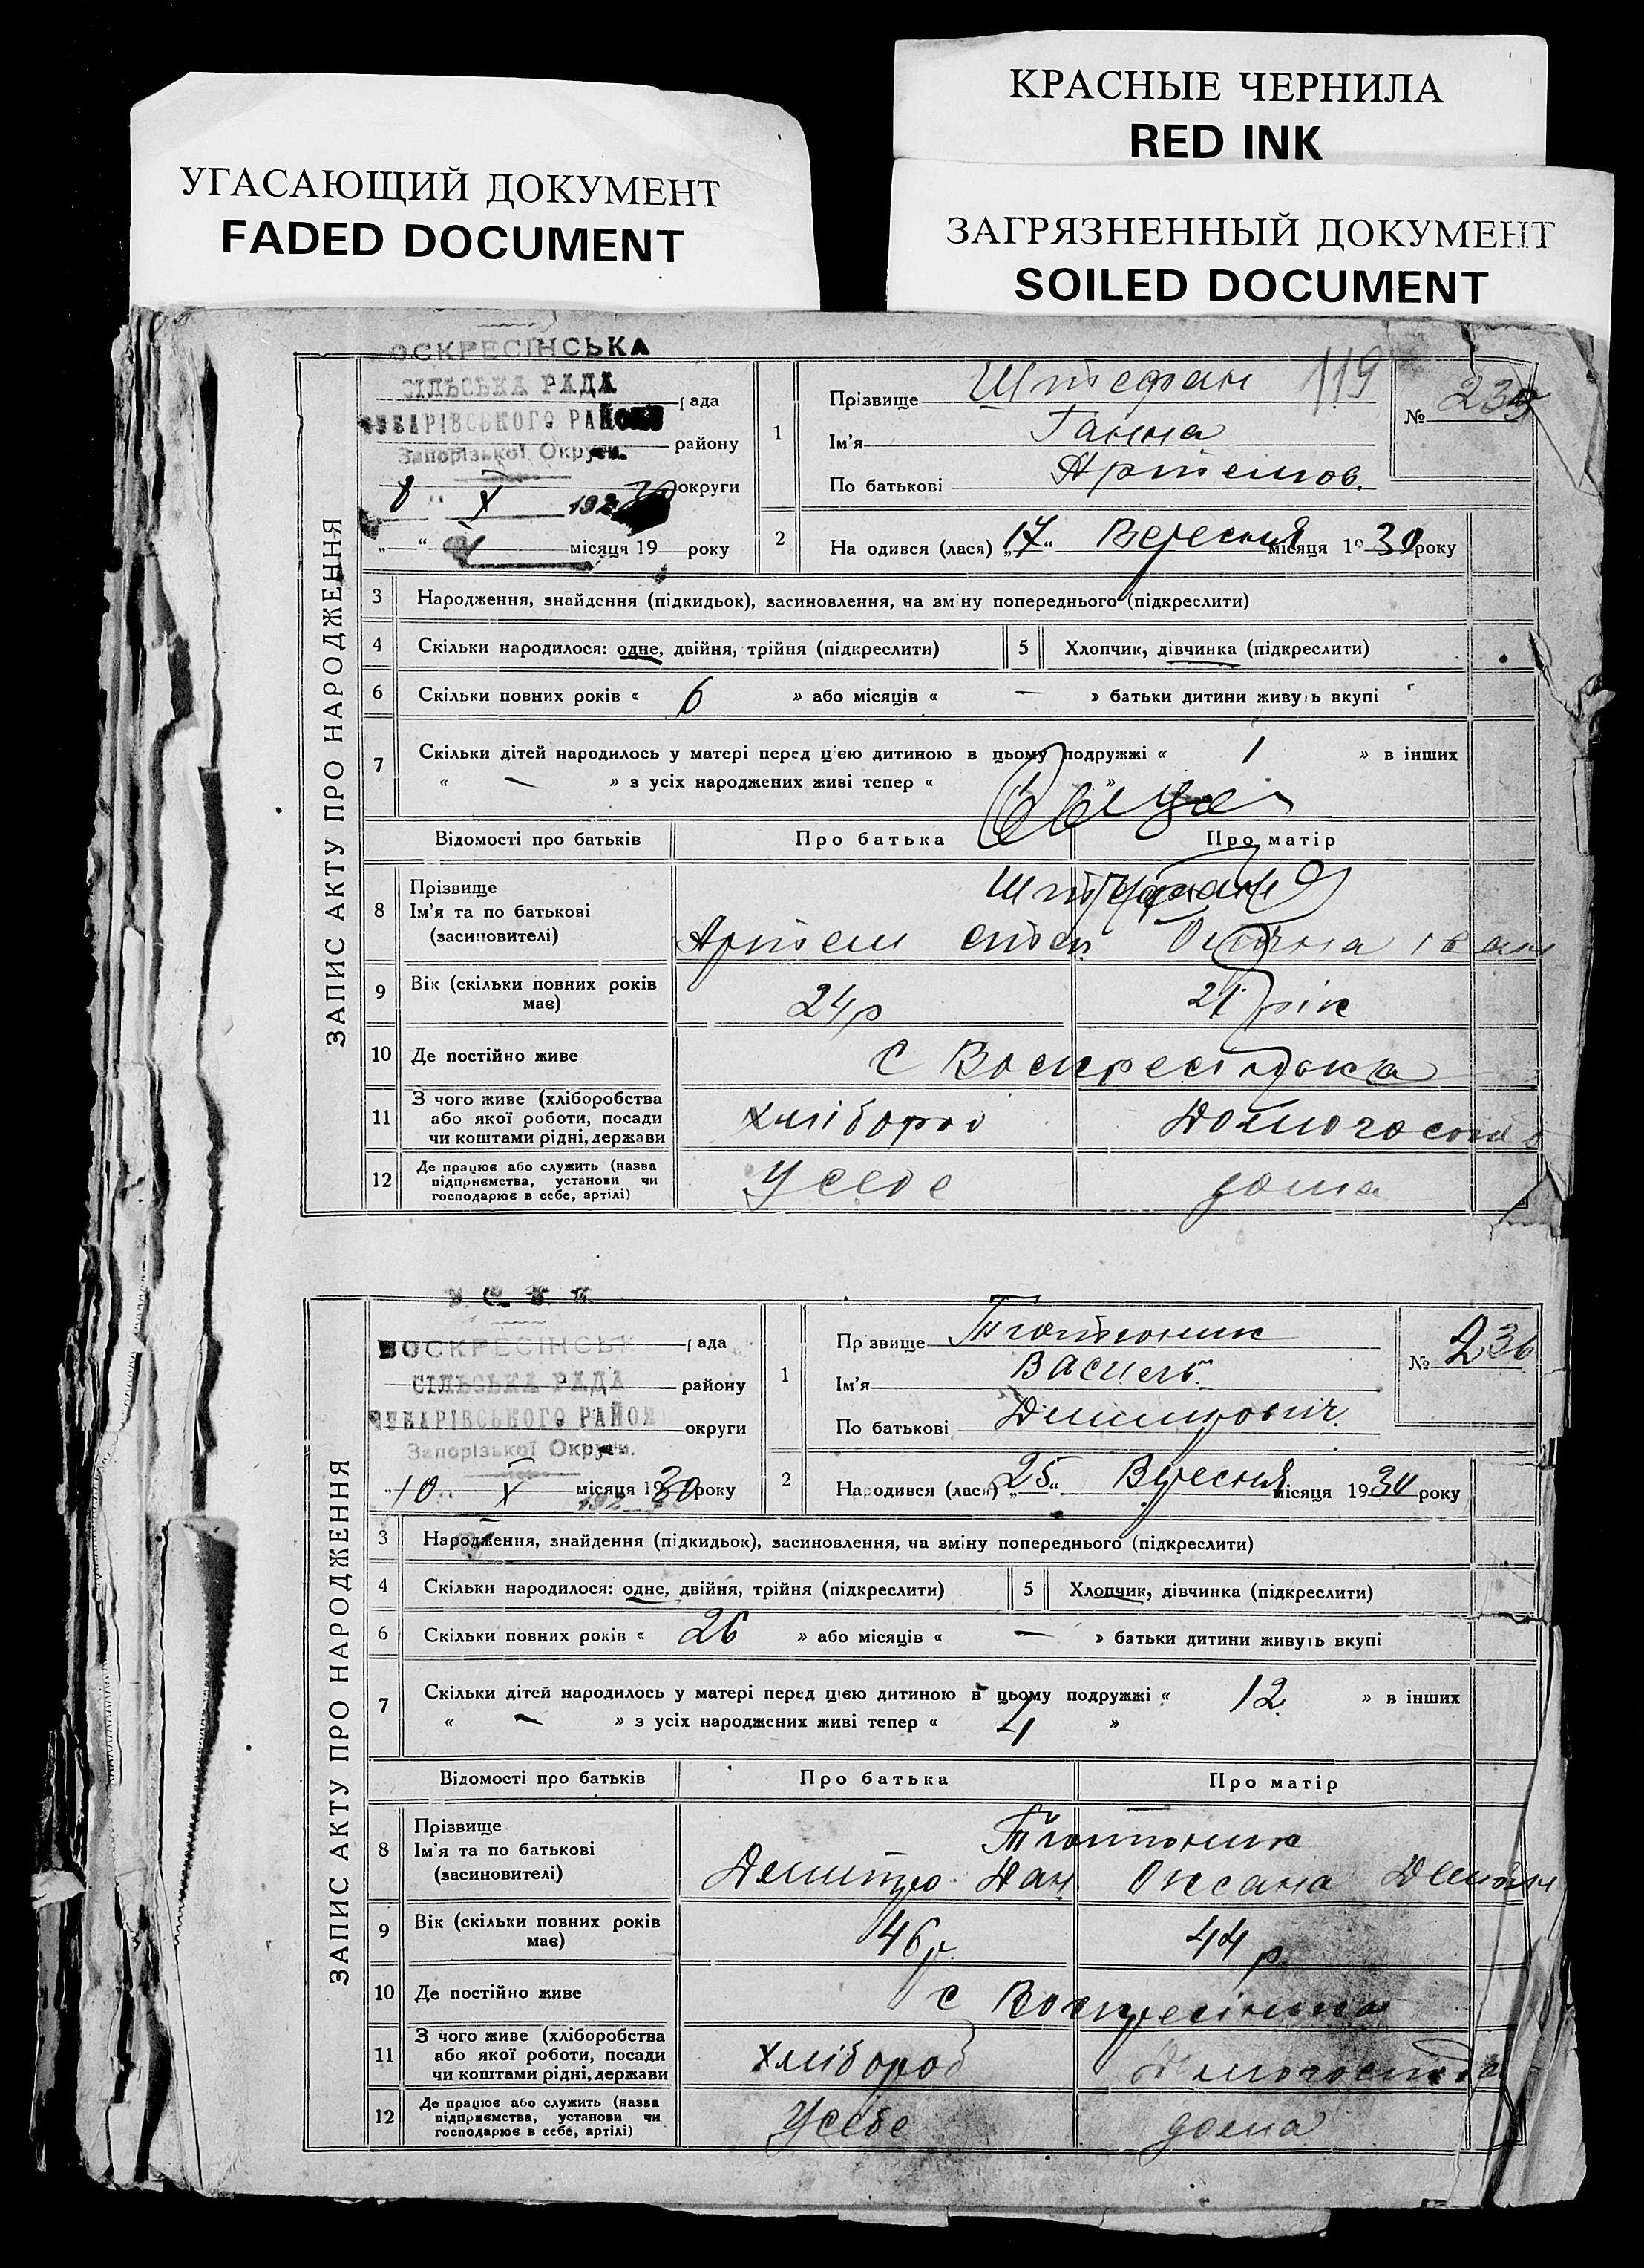 КРАСНЫЕ ЧЕРНИЛА
RED INK
УГАСАЮЩИЙ ДОКУМЕНТ
FADED DOCUMENT
ЗАГРЯЗНЕННЫЙ ДОКУМЕНТ
SOILED DOCUMENT
ЗАПИС АКТУ ПРО НАРОДЖЕННЯ
ОСКРЕСІНСЬКА
СІЛЬСЬКА РАДА
рада
ЧУБАРІВСЬКОГО РАЙОНУ
району
Запорізької Округи.
округи
8 X 1930
„ “ місяця 19 року
1 Прізвище Штефан 119
Ім'я Ганна
По батькові Артемов.
№ 235
2 Народився (лася) „17“ Вересня місяця 1930 року
3 Народження, знайдення (підкидьок), засиновлення, на зміну попереднього (підкреслити)
4 Скільки народилося: одне, двійня, трійня (підкреслити) 5 Хлопчик, дівчинка (підкреслити)
6 Скільки повних років « 6 » або місяців « — » батьки дитини живуть вкупі
7 Скільки дітей народилось у матері перед цією дитиною в цьому подружжі « 1 » в інших
« — » з усіх народжених живі тепер « »
Відомості про батьків Про батька Про матір
8 Прізвище
Ім'я та по батькові
(засиновителі)
Штефан
Артем Степ Іван
9 Вік (скільки повних років має) 24 р 21 рік
10 Де постійно живе С Воскресінька
11 З чого живе (хліборобства
або якої роботи, посади
чи коштами рідні, держави
Хлібороб Домогоспод
12 Де працює або служить (назва
підприємства, установи чи
господарює в себе, артілі)
У себе дома
ЗАПИС АКТУ ПРО НАРОДЖЕННЯ
У. С. Р. Р.
ВОСКРЕСІНСЬК
рада
СІЛЬСЬКА РАДА
району
ЧУБАРІВСЬКОГО РАЙОН
округи
Запорізької Округи.
„10“ X місяця 1930 року
1 Прізвище Тютюник
Ім'я Василь
По батькові Дмитрович.
№ 236
2 Народився (лася) „25“ Вересня місяця 1930 року
3 Народження, знайдення (підкидьок), засиновлення, на зміну попереднього (підкреслити)
4 Скільки народилося: одне, двійня, трійня (підкреслити) 5 Хлопчик, дівчинка (підкреслити)
6 Скільки повних років « 26 » або місяців « — » батьки дитини живуть вкупі
7 Скільки дітей народилось у матері перед цією дитиною в цьому подружжі « 12 » в інших
« — » з усіх народжених живі тепер « 4 »
Відомості про батьків Про батька Про матір
8 Прізвище
Ім'я та по батькові
(засиновителі)
Тютюник
Дмитро Дан Оксана Демян
9 Вік (скільки повних років має) 46 р. 44 р.
10 Де постійно живе с Воскресінька
11 З чого живе (хліборобства
або якої роботи, посади
чи коштами рідні, держави
Хлібороб Домогоспода
12 Де працює або служить (назва
підприємства, установи чи
господарює в себе, артілі)
У себе дома